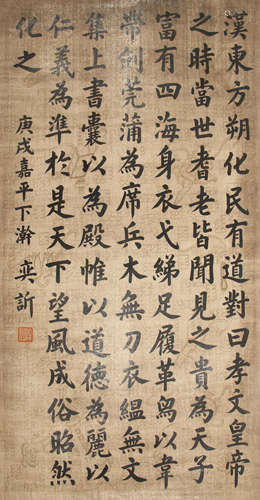 漢東方朔化民有道對曰孝文皇帝
之時當世耆老皆聞見之貴為天子
富有四海身衣弋綈足履革舄以韋
帶劍莞蒲為席兵木無刃衣縕無文
集上書囊以為殿帷以道德為麗以
仁義為準於是天下望風成俗昭然
化之
庚戌嘉平下澣 奕訢